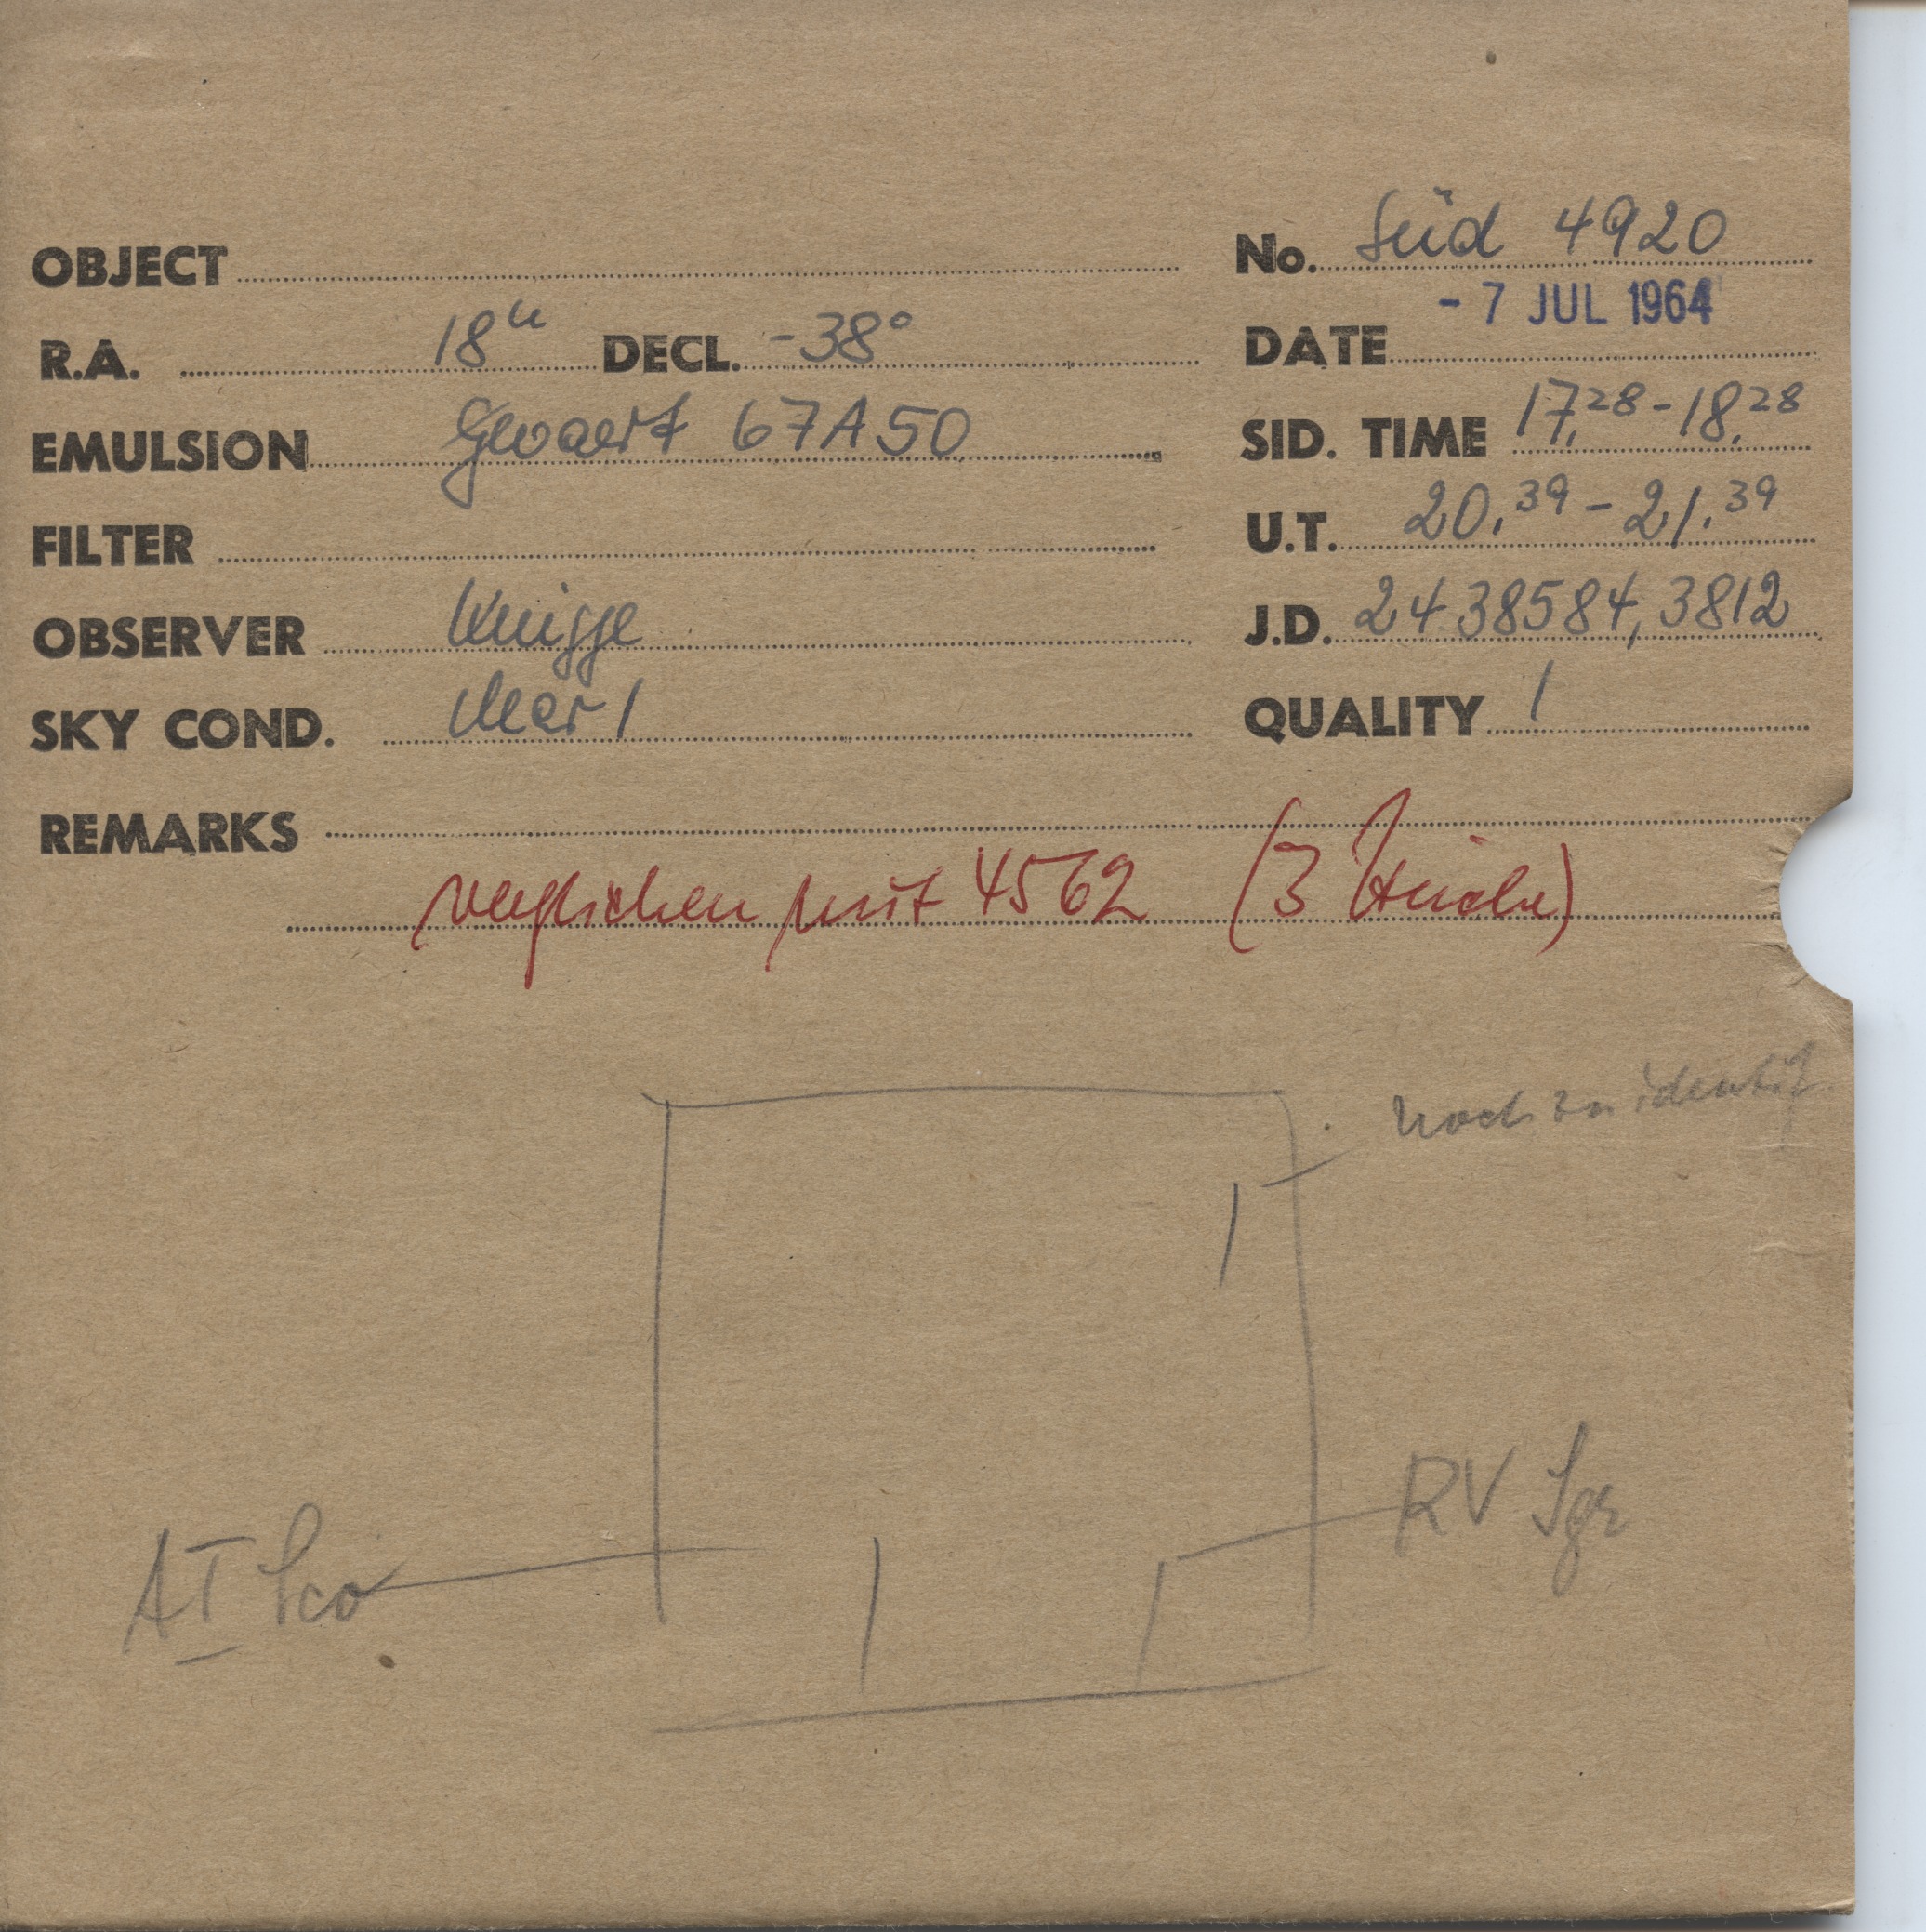 OBJECT No. Süd 4920
R.A. 18h DECL. -38° DATE - 7 JUL 1964
EMULSION Gevaert 67A50 SID. TIME 17,28 - 18,28
FILTER U.T. 20.39 - 21.39
OBSERVER Knigge J.D. 2438584,3812
SKY COND. clear 1 QUALITY 1
REMARKS
verglichen mit 4562 (3 Striche)
noch zu identif.
RV Sgr
AI Sco